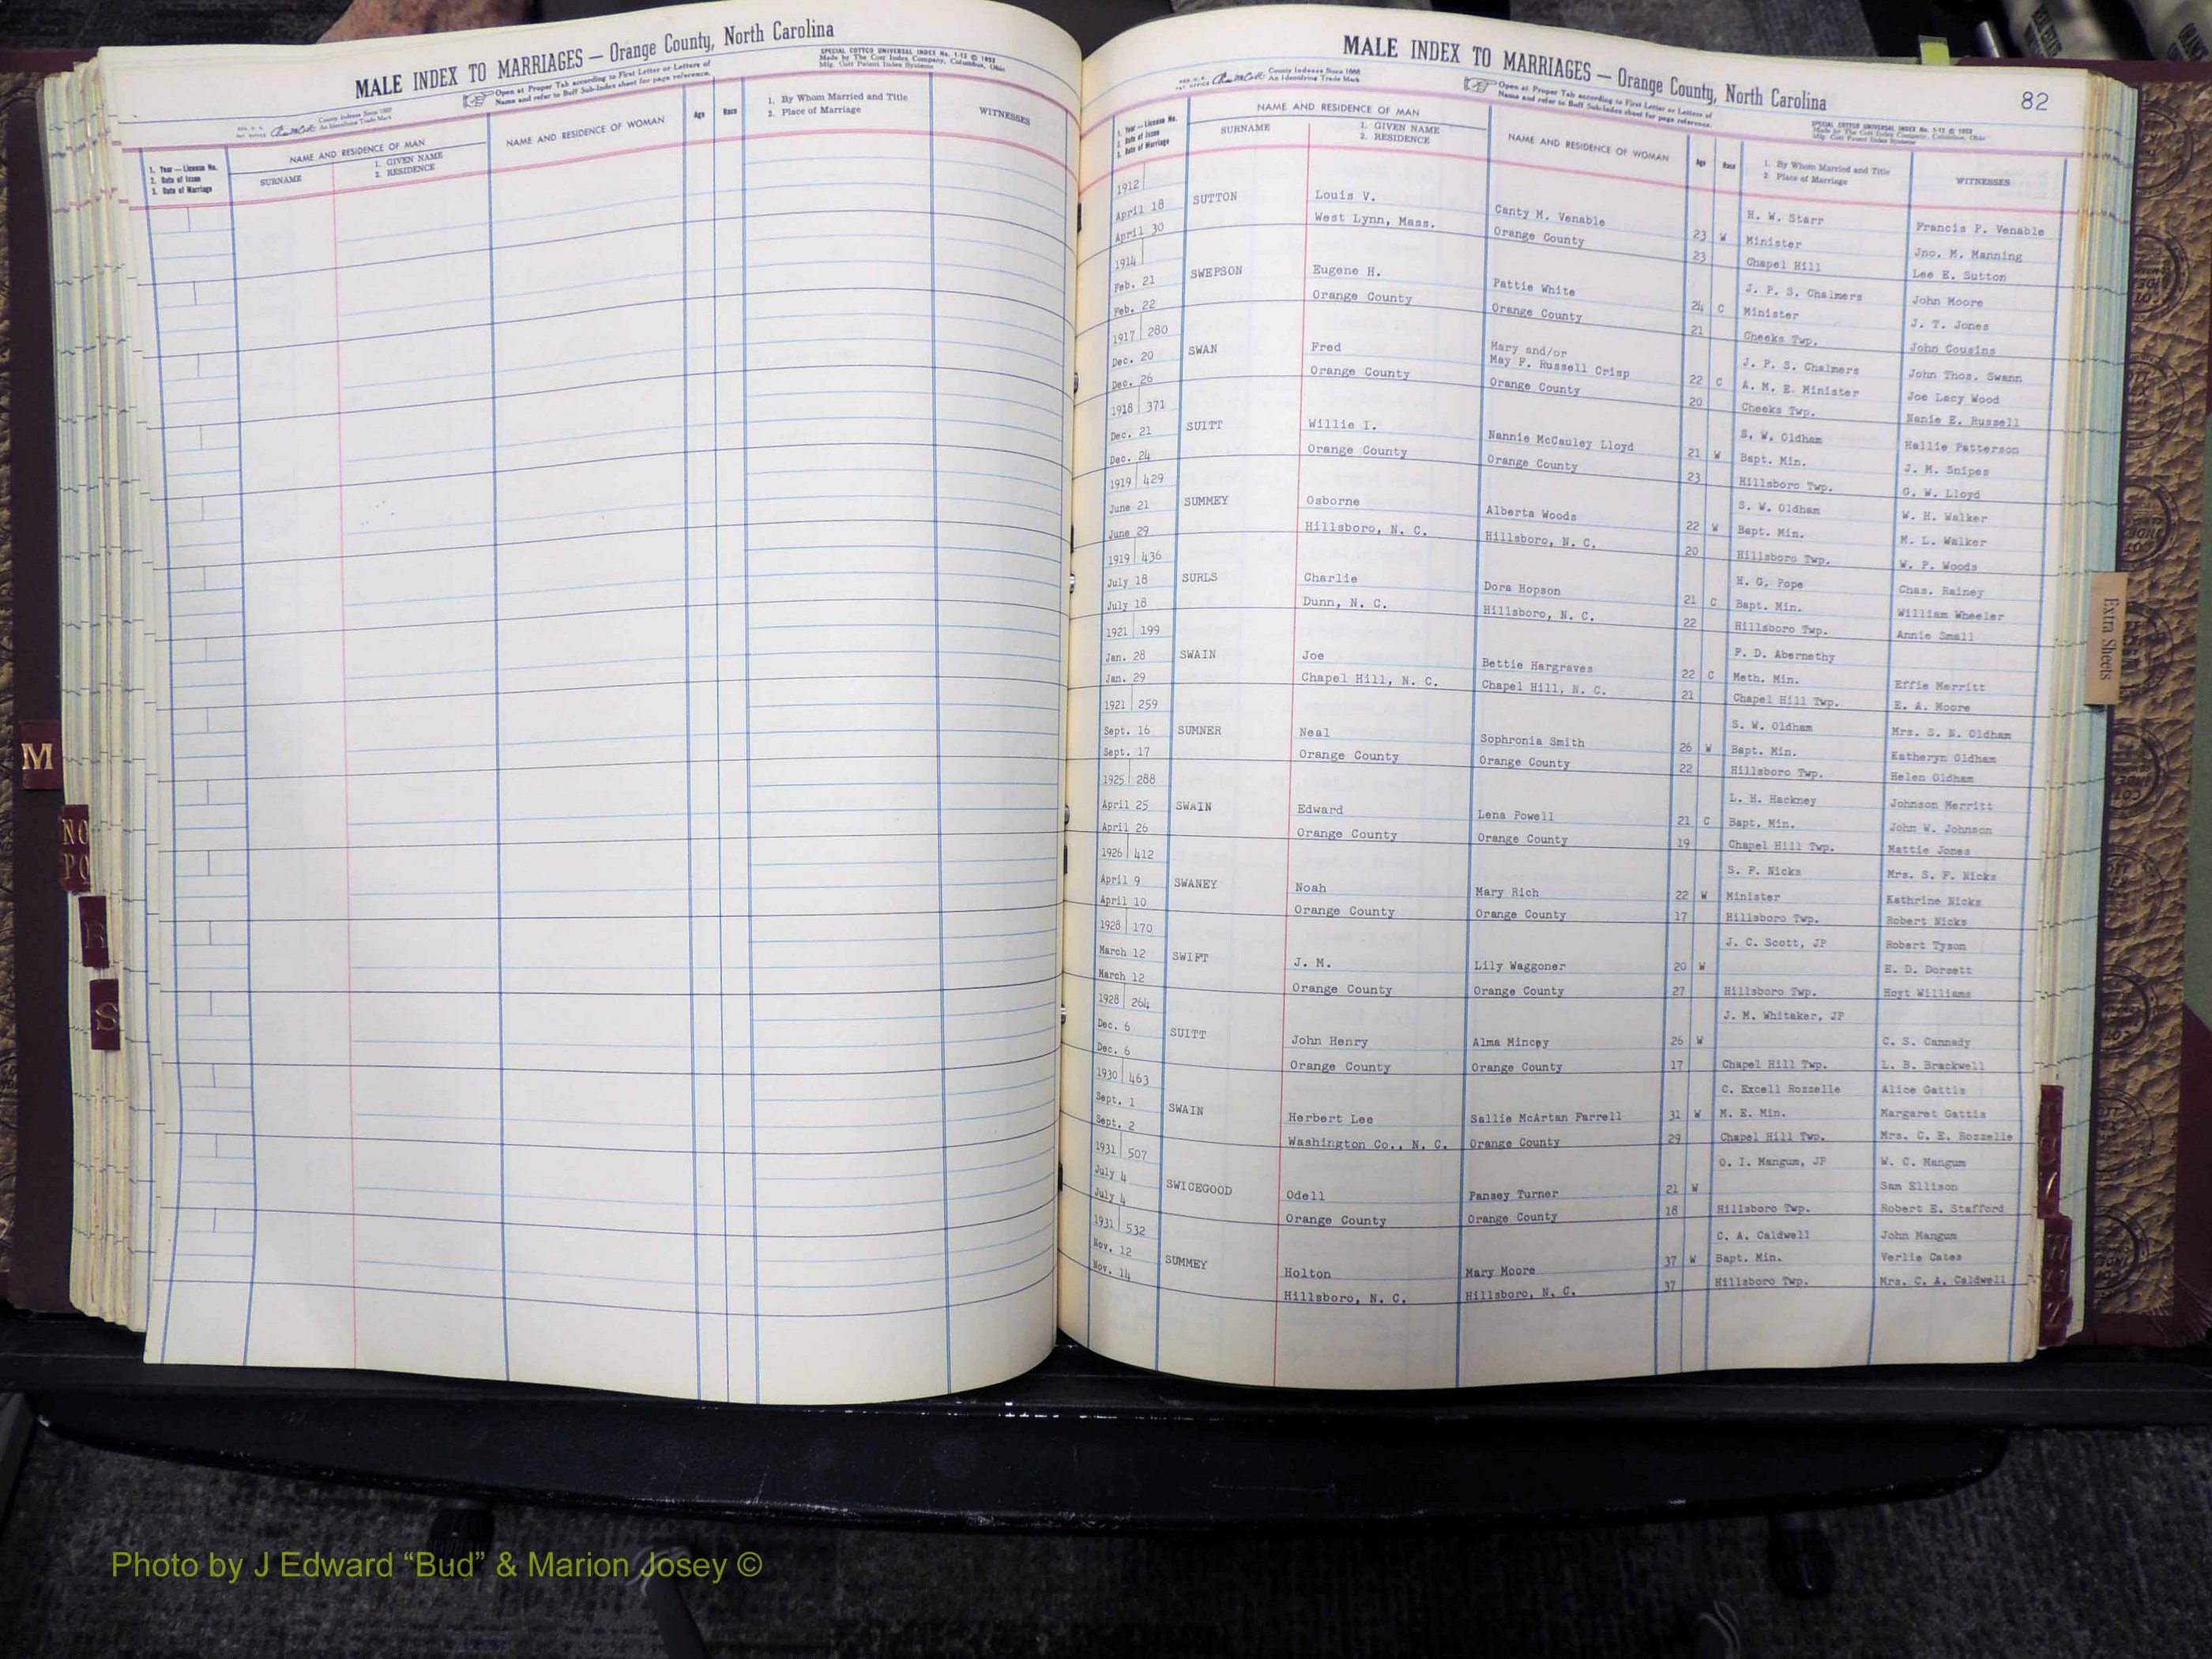 MALE INDEX TO MARRIAGES — Orange County, North Carolina
County Indexes Since 1888
An Identifying Trade Mark
Open at Proper Tab according to First Letter or Letters of
Name and refer to Buff Sub-Index sheet for page reference.
SPECIAL COTTCO UNIVERSAL INDEX No. 1-12 © 1953
Made by The Cott Index Company, Columbus, Ohio
Mfg. Cott Patent Index Systems
1. Year — License No.
2. Date of Issue
3. Date of Marriage
NAME AND RESIDENCE OF MAN
SURNAME
1. GIVEN NAME
2. RESIDENCE
NAME AND RESIDENCE OF WOMAN
Age
Race
1. By Whom Married and Title
2. Place of Marriage
WITNESSES
MALE INDEX TO MARRIAGES — Orange County, North Carolina
82
County Indexes Since 1888
An Identifying Trade Mark
Open at Proper Tab according to First Letter or Letters of
Name and refer to Buff Sub-Index sheet for page reference.
SPECIAL COTTCO UNIVERSAL INDEX No. 1-12 © 1953
Made by The Cott Index Company, Columbus, Ohio
Mfg. Cott Patent Index Systems
1. Year — License No.
2. Date of Issue
3. Date of Marriage
NAME AND RESIDENCE OF MAN
SURNAME
1. GIVEN NAME
2. RESIDENCE
NAME AND RESIDENCE OF WOMAN
Age
Race
1. By Whom Married and Title
2. Place of Marriage
WITNESSES
1912 H. W. Starr Francis P. Venable
April 18 SUTTON Louis V. Canty M. Venable 23 W Minister Jno. M. Manning
April 30 West Lynn, Mass. Orange County 23 Chapel Hill Lee E. Sutton
1914 J. P. S. Chalmers John Moore
Feb. 21 SWEPSON Eugene H. Pattie White 24 C Minister J. T. Jones
Feb. 22 Orange County Orange County 21 Cheeks Twp. John Cousins
1917 280 Mary and/or J. P. S. Chalmers John Thos. Swann
Dec. 20 SWAN Fred May F. Russell Crisp 22 C A. M. E. Minister Joe Lacy Wood
Dec. 26 Orange County Orange County 20 Cheeks Twp. Nanie E. Russell
1918 371 S. W. Oldham Hallie Patterson
Dec. 21 SUITT Willie I. Nannie McCauley Lloyd 21 W Bapt. Min. J. M. Snipes
Dec. 24 Orange County Orange County 23 Hillsboro Twp. G. W. Lloyd
1919 429 S. W. Oldham W. H. Walker
June 21 SUMMEY Osborne Alberta Woods 22 W Bapt. Min. M. L. Walker
June 29 Hillsboro, N. C. Hillsboro, N. C. 20 Hillsboro Twp. W. P. Woods
1919 436 H. G. Pope Chas. Rainey
July 18 SURLS Charlie Dora Hopson 21 C Bapt. Min. William Wheeler
July 18 Dunn, N. C. Hillsboro, N. C. 22 Hillsboro Twp. Annie Small
1921 199 P. D. Abernethy
Jan. 28 SWAIN Joe Bettie Hargraves 22 C Meth. Min. Effie Merritt
Jan. 29 Chapel Hill, N. C. Chapel Hill, N. C. 21 Chapel Hill Twp. E. A. Moore
1921 259 S. W. Oldham Mrs. S. N. Oldham
Sept. 16 SUMNER Neal Sophronia Smith 26 W Bapt. Min. Katheryn Oldham
Sept. 17 Orange County Orange County 22 Hillsboro Twp. Helen Oldham
1925 288 L. H. Hackney Johnson Merritt
April 25 SWAIN Edward Lena Powell 21 C Bapt. Min. John W. Johnson
April 26 Orange County Orange County 19 Chapel Hill Twp. Mattie Jones
1926 412 S. F. Nicks Mrs. S. F. Nicks
April 9 SWANEY Noah Mary Rich 22 W Minister Kathrine Nicks
April 10 Orange County Orange County 17 Hillsboro Twp. Robert Nicks
1928 170 J. C. Scott, JP Robert Tyson
March 12 SWIFT J. M. Lily Waggoner 20 W E. D. Dorsett
March 12 Orange County Orange County 27 Hillsboro Twp. Hoyt Williams
1928 264 J. M. Whitaker, JP
Dec. 6 SUITT John Henry Alma Mincey 26 W C. S. Cannady
Dec. 6 Orange County Orange County 17 Chapel Hill Twp. L. B. Brackwell
1930 463 C. Excell Rozzelle Alice Gattis
Sept. 1 SWAIN Herbert Lee Sallie McArtan Farrell 31 W M. E. Min. Margaret Gattis
Sept. 2 Washington Co., N. C. Orange County 29 Chapel Hill Twp. Mrs. C. E. Rozzelle
1931 507 O. I. Mangum, JP W. C. Mangum
July 4 SWICEGOOD Odell Pansey Turner 21 W Sam Ellison
July 4 Orange County Orange County 18 Hillsboro Twp. Robert E. Stafford
1931 532 C. A. Caldwell John Mangum
Nov. 12 SUMMEY Holton Mary Moore 37 W Bapt. Min. Verlie Cates
Nov. 14 Hillsboro, N. C. Hillsboro, N. C. 37 Hillsboro Twp. Mrs. C. A. Caldwell
Extra Sheets
M
NO
PQ
R
S
Photo by J Edward “Bud” & Marion Josey ©